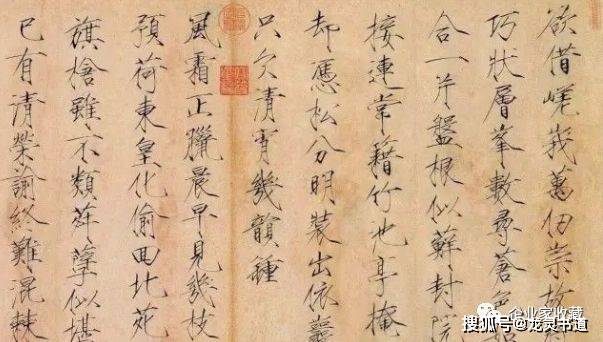 欲借嵯峨萬仞崇故
巧狀層峯數尋蒼
合一片盤根似蘚封院
接連常籍竹池亭掩
却憑松分明裝出依巖
只欠清宵幾韻鍾
風霜正臘晨早見幾枝
預荷東皇化偷回北苑
旗槍雖不類荈孽似堪
已有清榮諭終難混棘
企业家收藏
搜狐号@龙灵书道